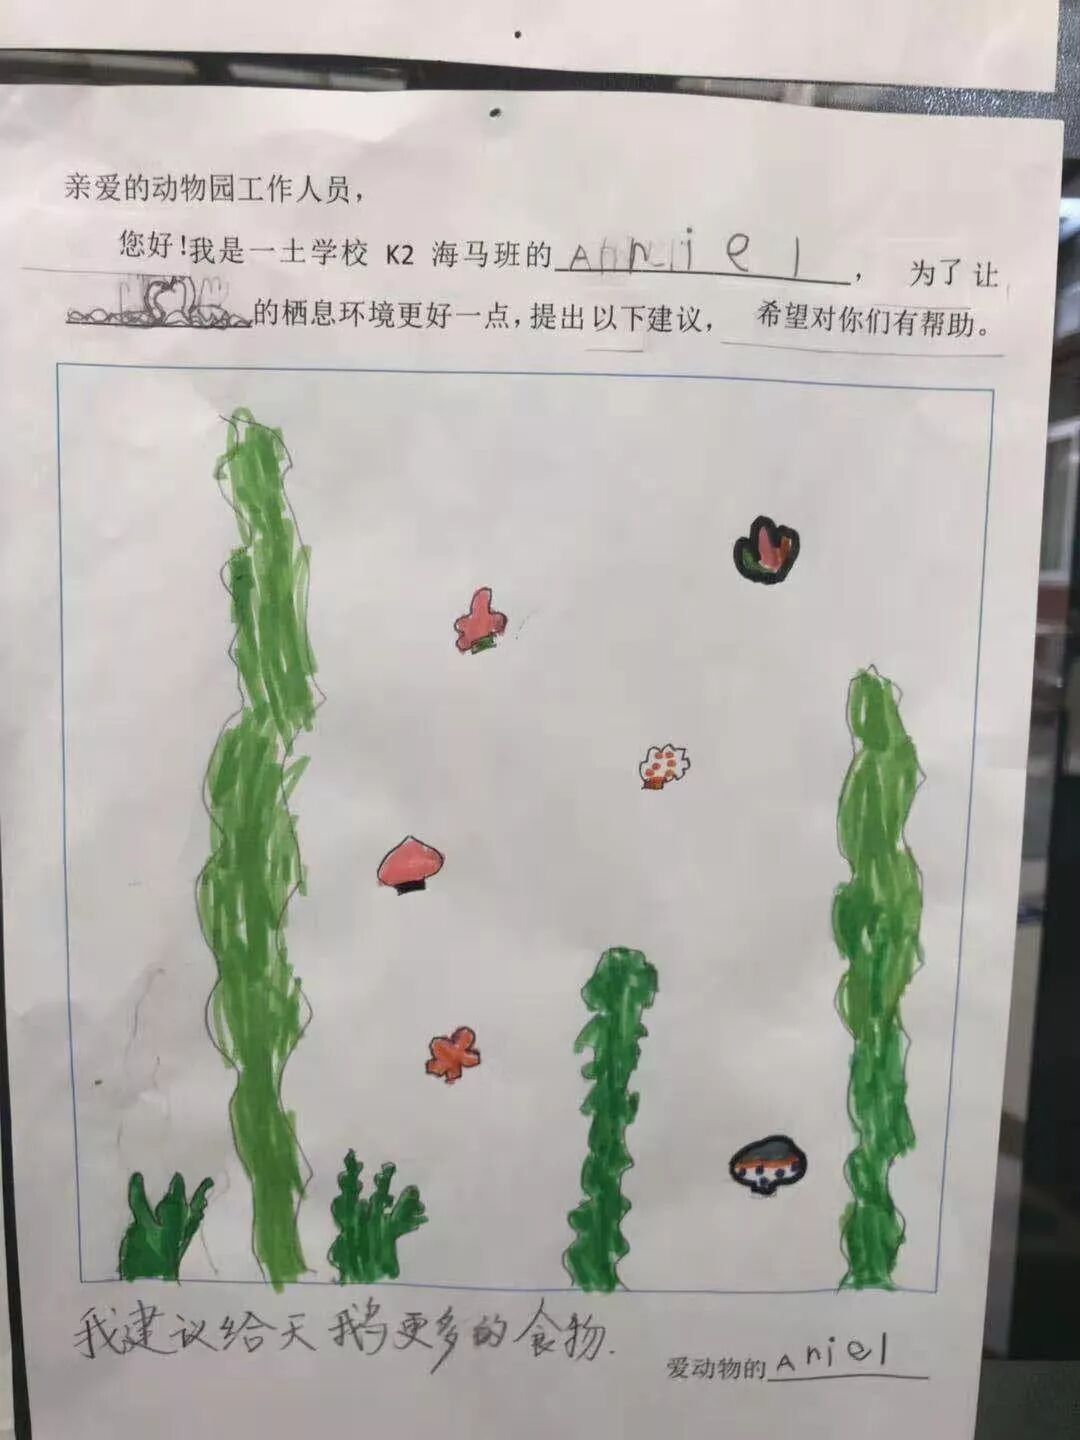 亲爱的动物园工作人员，
您好！我是一土学校 K2 海马班的 Aniel ， 为了让
的栖息环境更好一点，提出以下建议， 希望对你们有帮助。
我建议给天鹅更多的食物.
爱动物的 Aniel